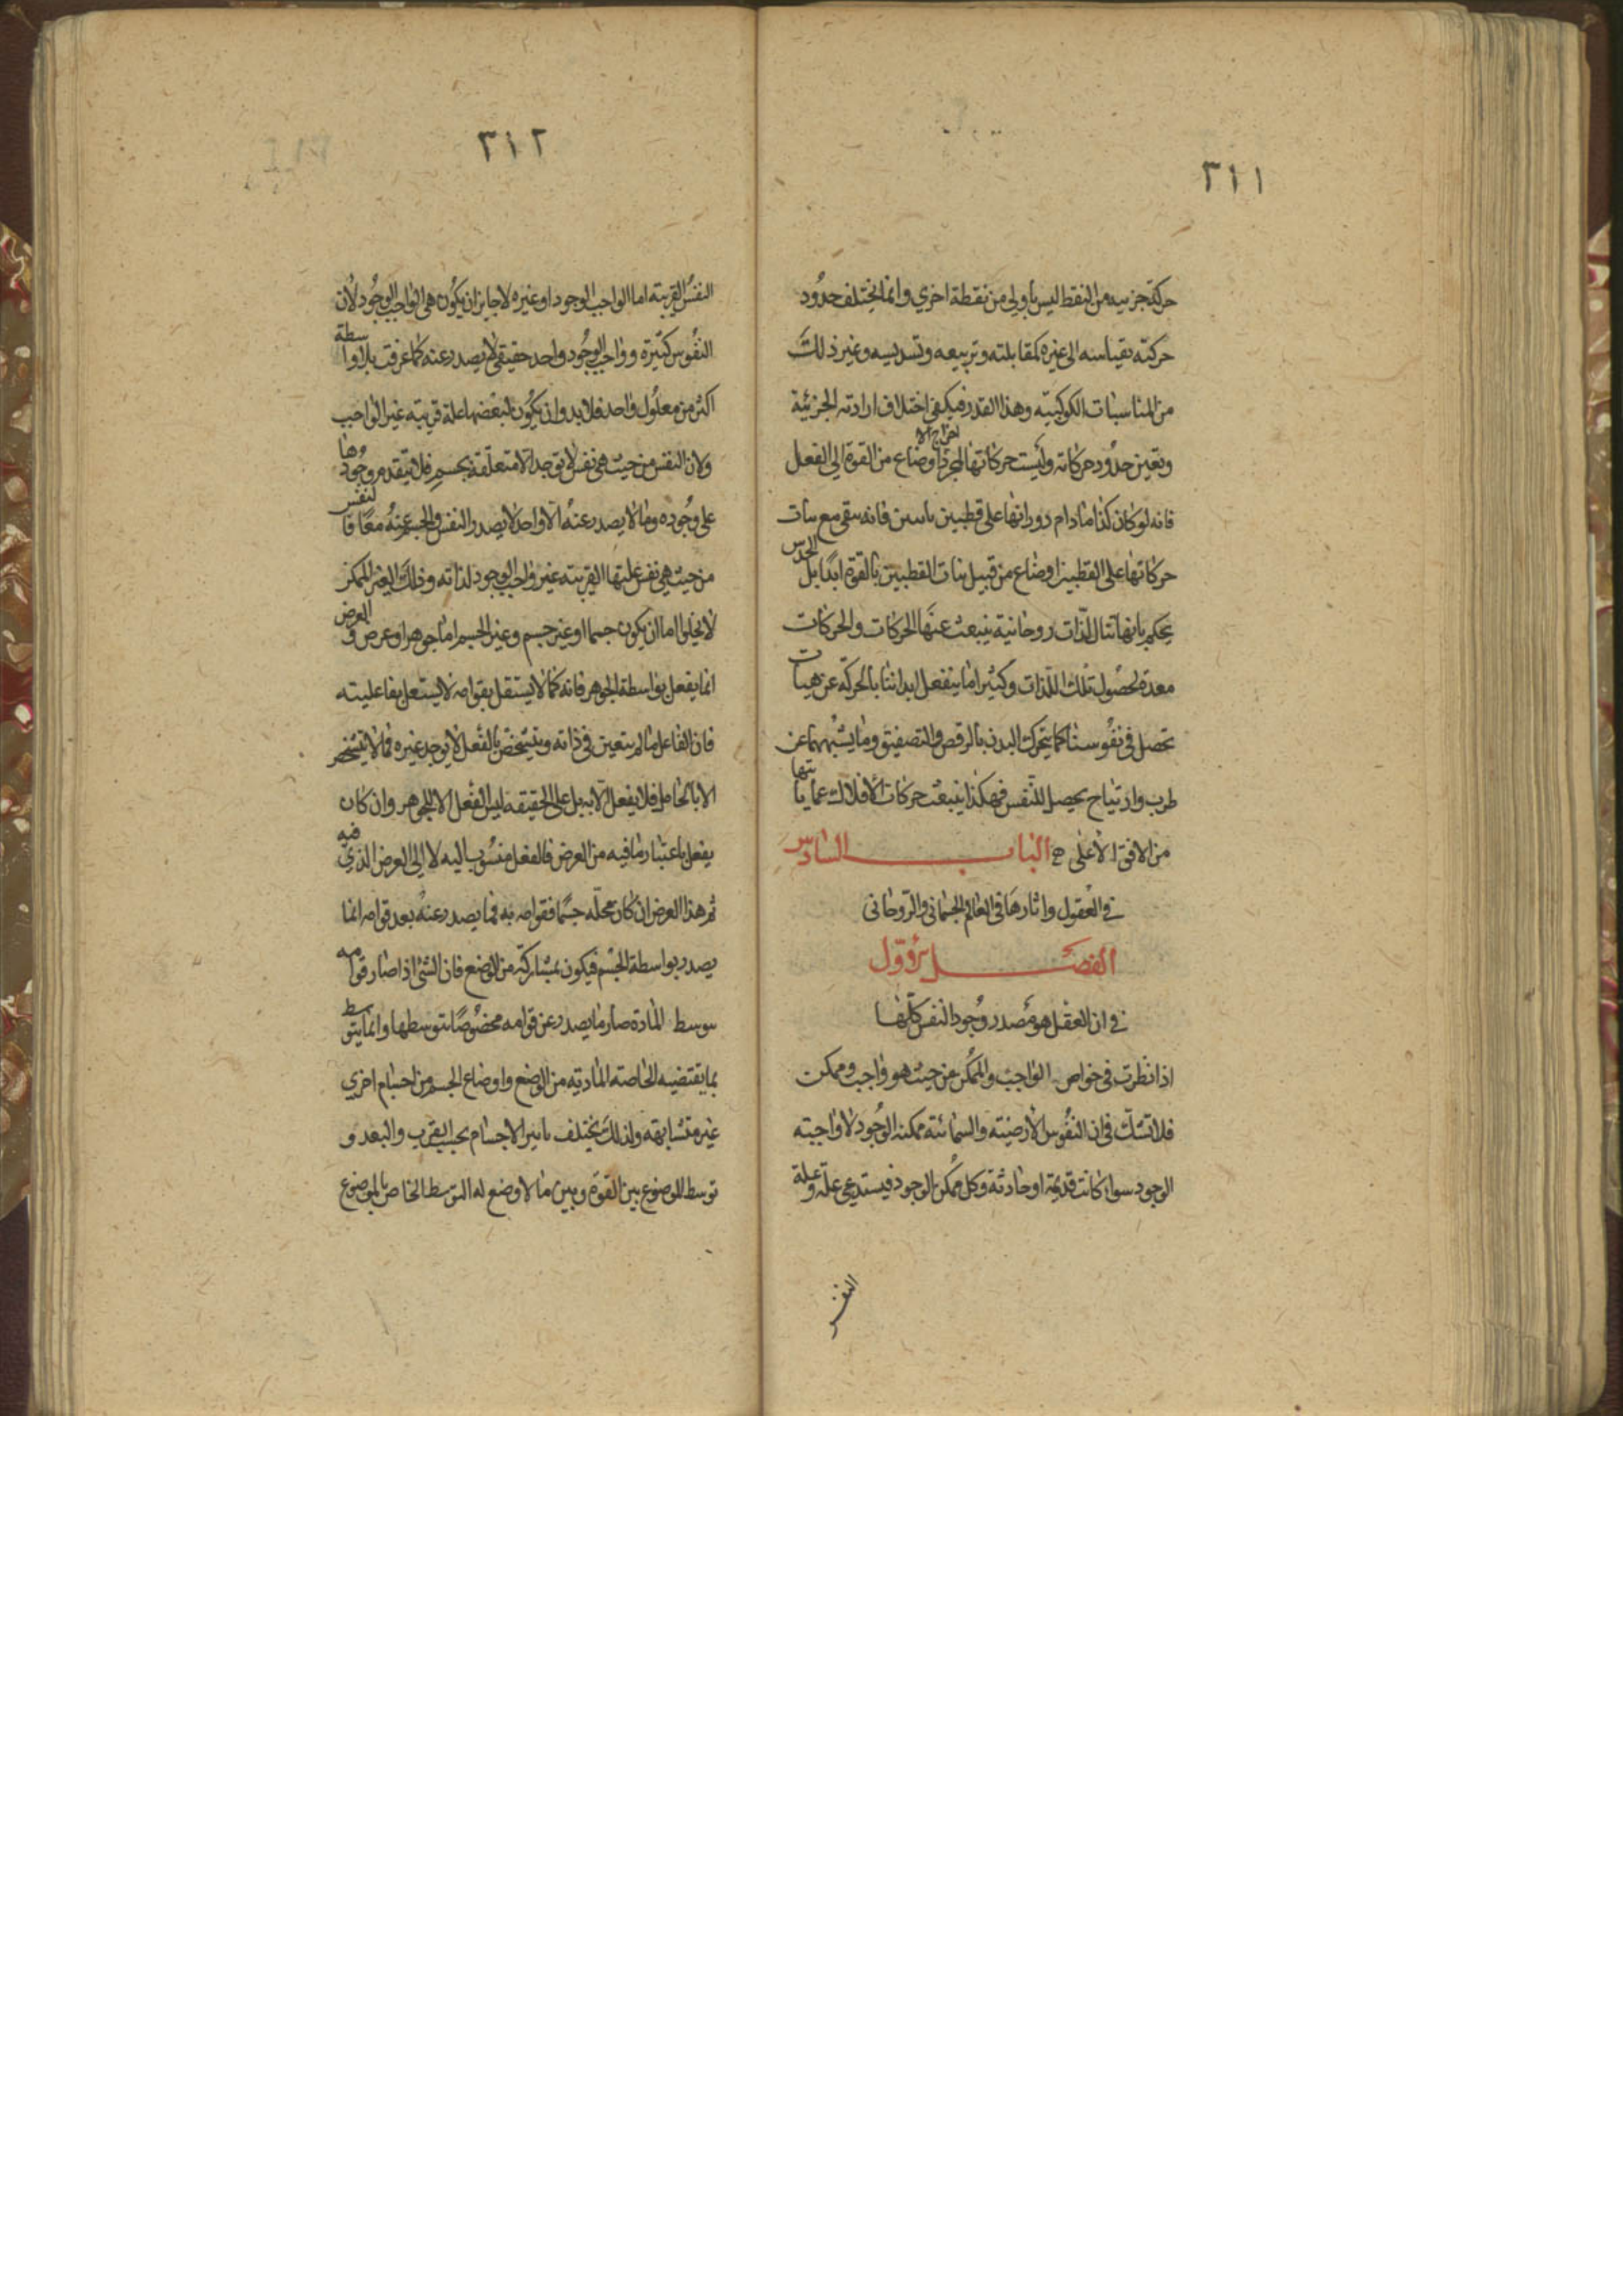 ٣١١
حركة جزئية من النقط ليس باولى من نقطة اخرى وانما يختلف حدود
حركته بقياسه الى غيره كمقابلته وتربيعه وتسديسه وغير ذلك
من المناسبات الكوكبيته وهذا القدر فيكفى اختلاف ارادته الجزئية
وتعين حدود حركاته وليست حركاتها لمجرد اخراج الاوضاع من القوة الى الفعل
فانه لو كان كذا ما دام دورانها على قطبين ثابتين فانه يبقى مع ثبات
حركاتها على القطبين اوضاع من قبيل ثبات القطبين بالقوة ابدًا بل الحدس
يحكم بانها تنال لذات روحانية ينبعث عنها الحركات والحركات
معدة لحصول تلك اللذات وكثيرا ما ينفعل ابداننا بالحركة عن هيات
تحصل فى نفوسنا كما يتحرك البدن بالرقص والتصفيق وما يشبههما عن
طرب وارتياح يحصل للنفس فهكذا ينبعث حركات الافلاك عما ياتيها
من الافق الاعلى الباب السادس
فى العقول واثارها فى العالم الجسمانى والروحانى
الفصل الاول
فى ان العقل هو مصدر وجود النفس كلها
اذا نظرت فى خواص الواجب والممكن من حيث هو واجب وممكن
فلا تشك فى ان النفوس الارضيته والسمائته ممكنه الوجود لا واجبته
الوجود سواء كانت قديمة او حادثة وكل ممكن الوجود فيستدعى علة وعلة
النفس
٣١٢
النفس القريبته اما الواجب الوجود او غيره لا جايز ان يكون هى الواجب الوجود لان
النفوس كثيرة وواجب الوجود واحد حقيقى لا يصدر عنه كما عرفت بلا واسطة
اكثر من معلول واحد فلا بد وان يكون لبعضها علة قريبته غير الواجب
ولان النفس من حيث هى نفس لا توجد الا متعلقة بجسم فلا يتقدم وجودها
على وجوده وما لا يصدر عنه الا واحد لا يصدر النفس والجسم عنه معًا فالنفس
من حيث هى نفس علتها القريبته غير واجب الوجود لذاته وذلك الغير الممكن
لا يخلوا اما ان يكون جسما او غير جسم وغير الجسم اما جوهر او عرض والعرض
انما يفعل بواسطة الجوهر فانه كما لا يستقل بقوامه لا يستقل بفاعليته
فان الفاعل ما لم يتعين فى ذاته ويتشخص بالفعل لا يوجد غيره فما لا يتشخص
الا بالحامل فلا يفعل الا به بل على الحقيقه ليس الفعل الا للجوهر وان كان
يفعل باعتبار ما فيه من العرض فالفعل منسوب اليه لا الى العرض الذى فيه
ثم هذا العرض ان كان محلّه جسمًا فقوامه به فما يصدر عنه بعد قوامه انما
يصدر بواسطة الجسم فيكون بمشاركة من الوضع فان الشئ اذا صار قوامه
بتوسط المادة صار ما يصدر عن قوامه مخصوصًا بتوسطها وانما يتوسط
بما يقتضيه الخاصته المادية من الوضع واوضاع الجسم من اجسام اخرى
غير متشابهته ولذلك يختلف تاثير الاجسام بحسب القرب والبعد و
توسط الموضوع بين القوة وبين ما لا وضع له التوسط الخاص بالموضوع